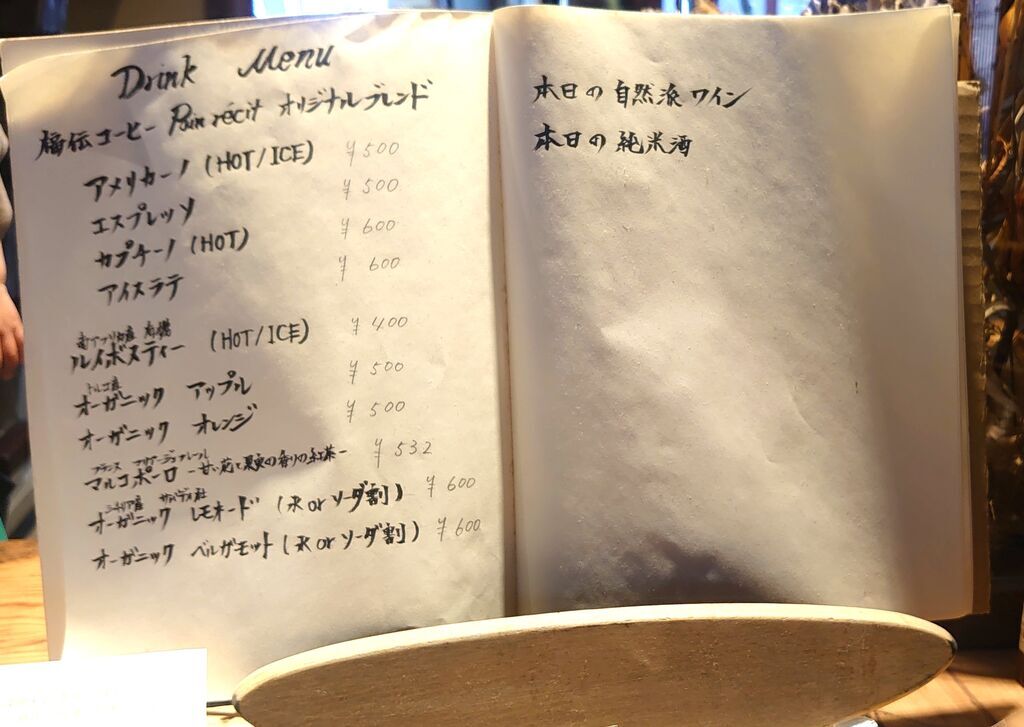 Drink Menu
福伝コーヒー Pain récit オリジナルブレンド
アメリカーノ (HOT/ICE) ¥500
エスプレッソ ¥500
カプチーノ (HOT) ¥600
アイスラテ ¥600
南アフリカ産 有機
ルイボスティー (HOT/ICE) ¥400
トルコ産
オーガニック アップル ¥500
オーガニック オレンジ ¥500
フランス マリアージュフレール
マルコポーロ -甘い花と果実の香りの紅茶- ¥532
シチリア産
オーガニック レモネード (水 or ソーダ割) ¥600
オーガニック ベルガモット (水 or ソーダ割) ¥600
本日の自然派ワイン
本日の純米酒